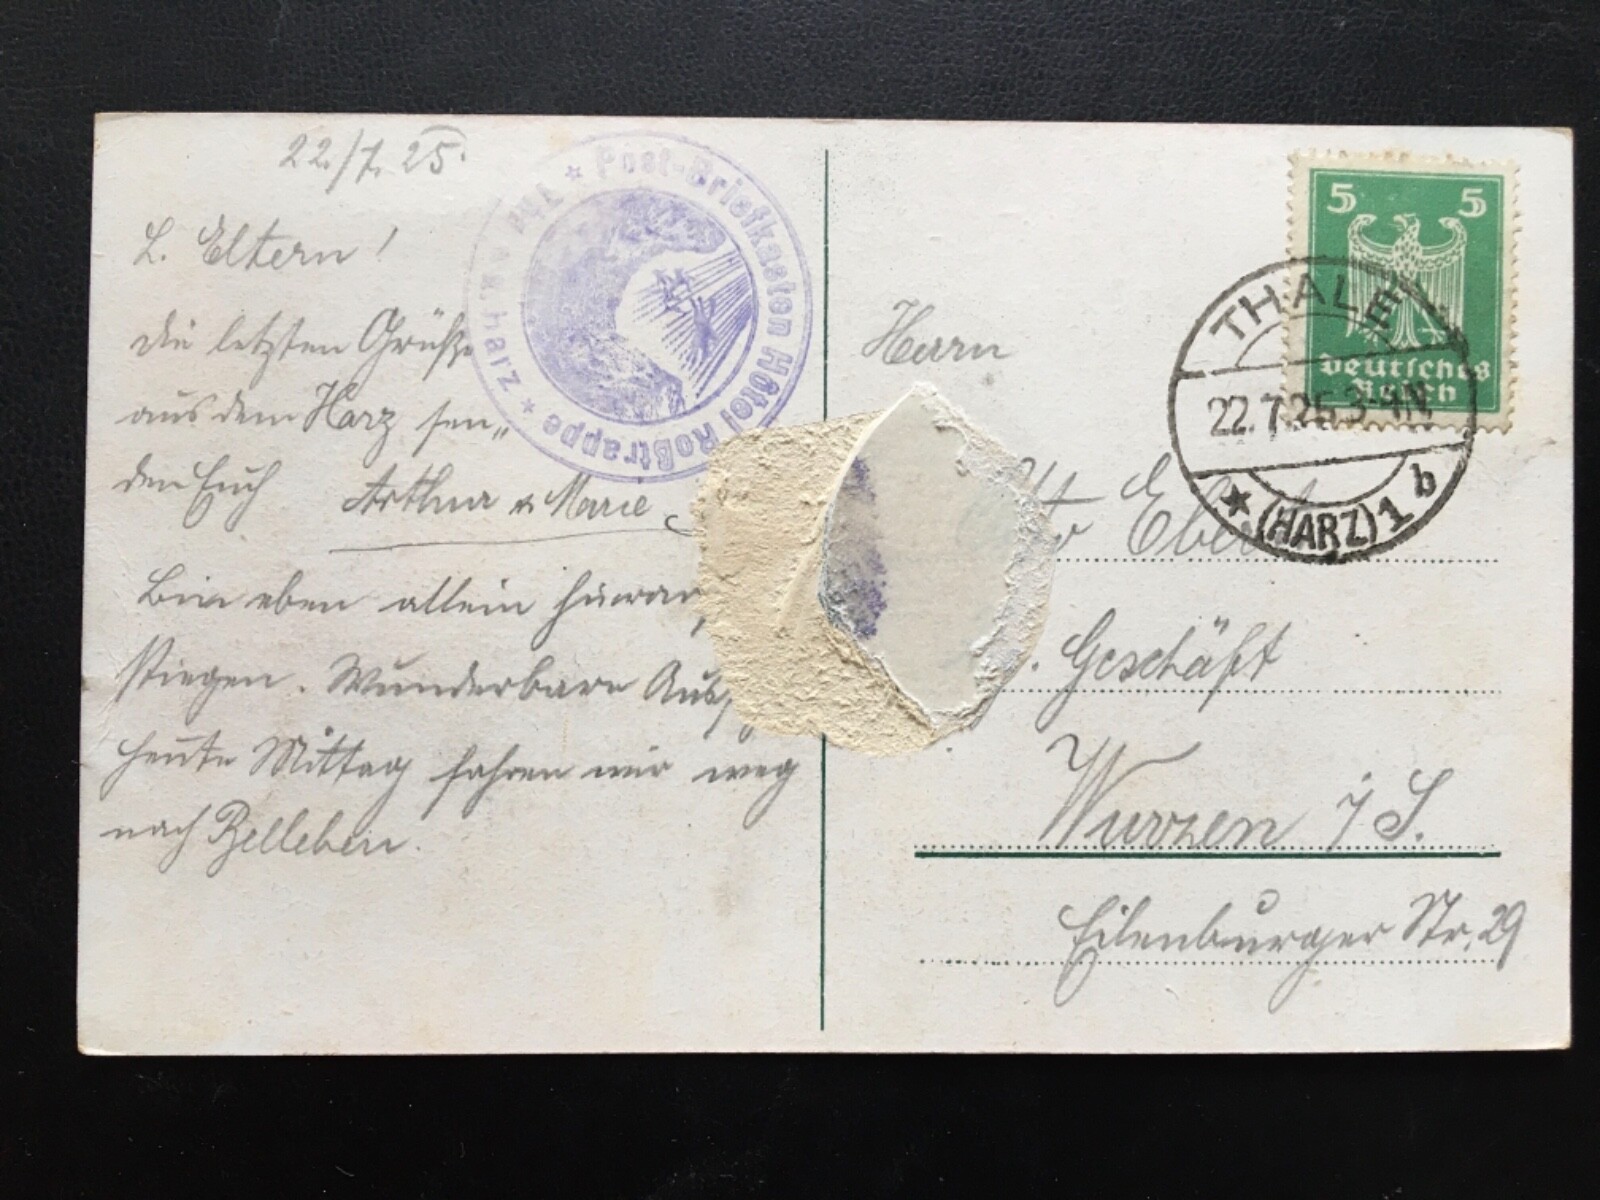 22./7. 25.
L. Eltern!
die letzten Grüße
aus dem Harz sen„
den Euch Arthur u. Marie
Bin eben allein
stiegen. Wunderbare
heute Mittag fahren wir weg
nach Belleben.
Thale a. Harz * Post-Briefkasten Hôtel Roßtrappe *
5 5
Deutsches
Reich
THALE
22.7.25.3-4N
* (HARZ) 1 b
Herrn
Geschäft
Wurzen i/S.
Eilenburger Str. 29